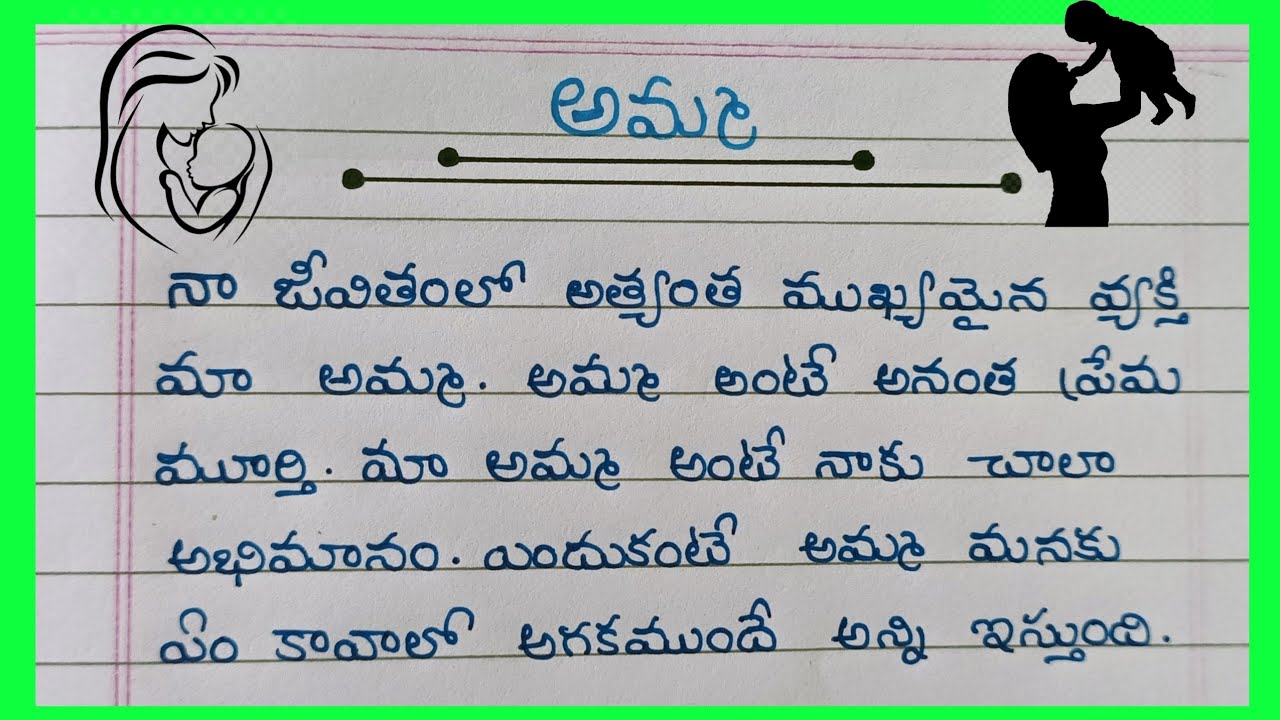 అమ్మ
నా జీవితంలో అత్యంత ముఖ్యమైన వ్యక్తి
మా అమ్మ. అమ్మ అంటే అనంత ప్రేమ
మూర్తి. మా అమ్మ అంటే నాకు చాలా
అభిమానం. ఎందుకంటే అమ్మ మనకు
ఏం కావాలో అగకముందే అన్ని ఇస్తుంది.